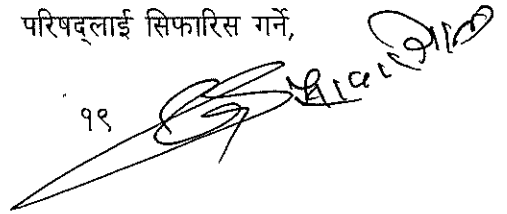 परिषद्लाई सिफारिस गर्ने,
१९